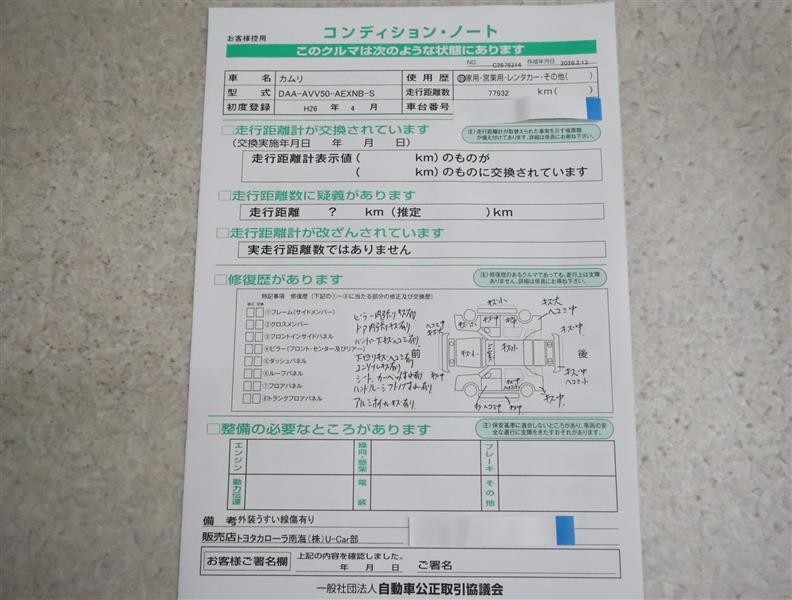 お客様控用
コンディション・ノート
このクルマは次のような状態にあります
NO. C2676314 作成年月日
車名 カムリ 使用歴 自家用・営業用・レンタカー・その他( )
型式 DAA-AVV50-AEXNB-S 走行距離数 77932 km ( )
初度登録 H26 年 4 月 車台番号
□走行距離計が交換されています
注)走行距離計が取替えられた事実を示す帳票類が備え付けてあります。詳細は係員にお尋ね下さい。
(交換実施年月日 年 月 日)
走行距離計表示値( km)のものが
( km)のものに交換されています
□走行距離数に疑義があります
走行距離 ? km (推定 )km
□走行距離計が改ざんされています
実走行距離数ではありません
□修復歴があります
注)修復歴のあるクルマであっても、走行上は支障ありません。詳細は係員にお尋ね下さい。
特記事項 修復歴(下記の①～⑧に当たる部分の修正及び交換歴)
修正 交換
①フレーム(サイドメンバー)
②クロスメンバー
③フロントインサイドパネル
④ピラー(フロント・センター及びリアー)
⑤ダッシュパネル
⑥ルーフパネル
⑦フロアパネル
⑧トランクフロアパネル
ピラー内張りキズ有
ドア内張キズ有り
アルミホイルキズ有り
前
後
キズ大
ヘコミ中
キズ中
□整備の必要なところがあります
注)保安基準に適合しないところがあり、車両の安全な運行に支障をきたすおそれがあります。
エンジン 操向・懸架 ブレーキ
動力伝達 電装 その他
備考 外装うすい線傷有り
販売店 トヨタカローラ南海(株)U-Car部
お客様ご署名欄 上記の内容を確認しました。
年 月 日 ご署名
一般社団法人 自動車公正取引協議会